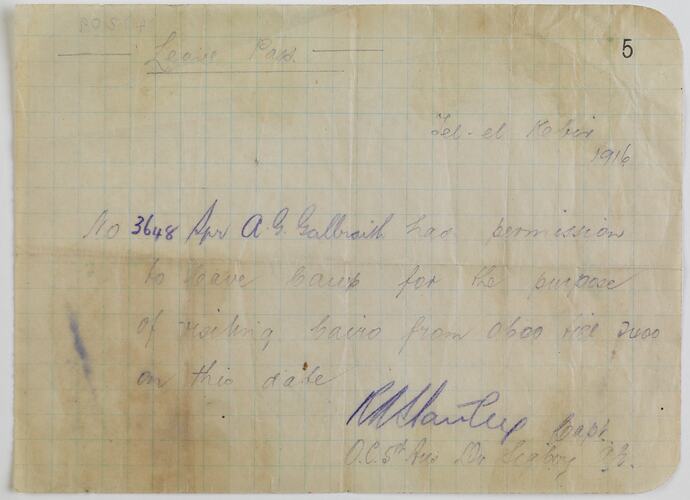 5
Leave Pass
Tel-el Kebir
1916
No 3648 Spr A. G. Galbraith has permission
to leave camp for the purpose
of visiting Cairo from 0600 till 2400
on this date
Capt
O.C. 5th Aus Div